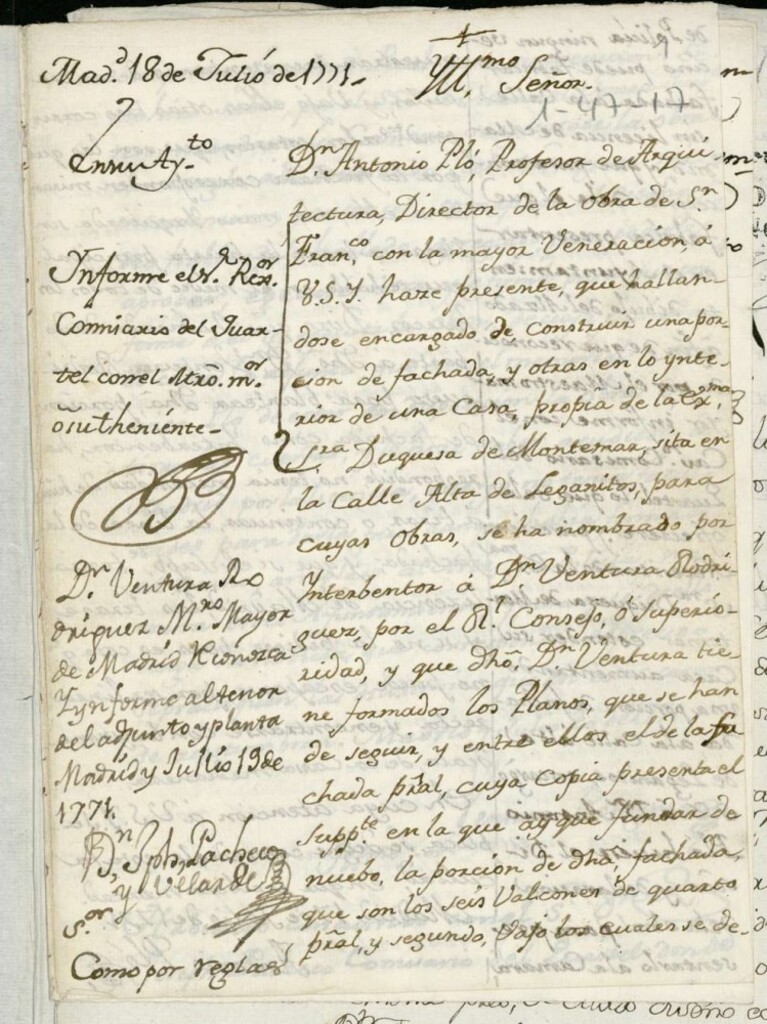 Mad.d 18 de Julio de 1771.
Yll.mo Señor.
1-47-17
En su Ay.to
Informe el S.r Rex.or
Comisario del Quar-
tel con el Mro. m.or
ó su theniente-
D.n Ventura Ro
driguez M.ro Mayor
de Madrid Reconozca
Y ynforme al tenor
del adjunto y planta
Madrid y Julio 19 de
1771.
D.n Jph. Pacheco
y Velarde
S.or
Como por reglas
D.n Antonio Pló, Profesor de Arqui-
tectura, Director de la Obra de S.n
Fran.co con la mayor Veneracion, á
V.S.Y. haze presente, que hallan-
dose encargado de construir una por-
cion de fachada, y otras en lo ynte-
rior de una Casa, propia de la Ex.ma
S.ra Duquesa de Montemar, sita en
la Calle Alta de Leganitos, para
cuyas Obras, se ha nombrado por
Ynterbentor á D.n Ventura Rodri-
guez, por el R.l Consejo, ó Superio-
ridad, y que dho, D.n Ventura tie-
ne formados los Planos, que se han
de seguir, y entre ellos el de la fa
chada pral, cuya Copia presenta el
Supp.te en la que ay que fundar de
nuebo, la porcion de dha, fachada,
que son los seis Valcones de quarto
pral, y segundo, vajo los cuales se de-